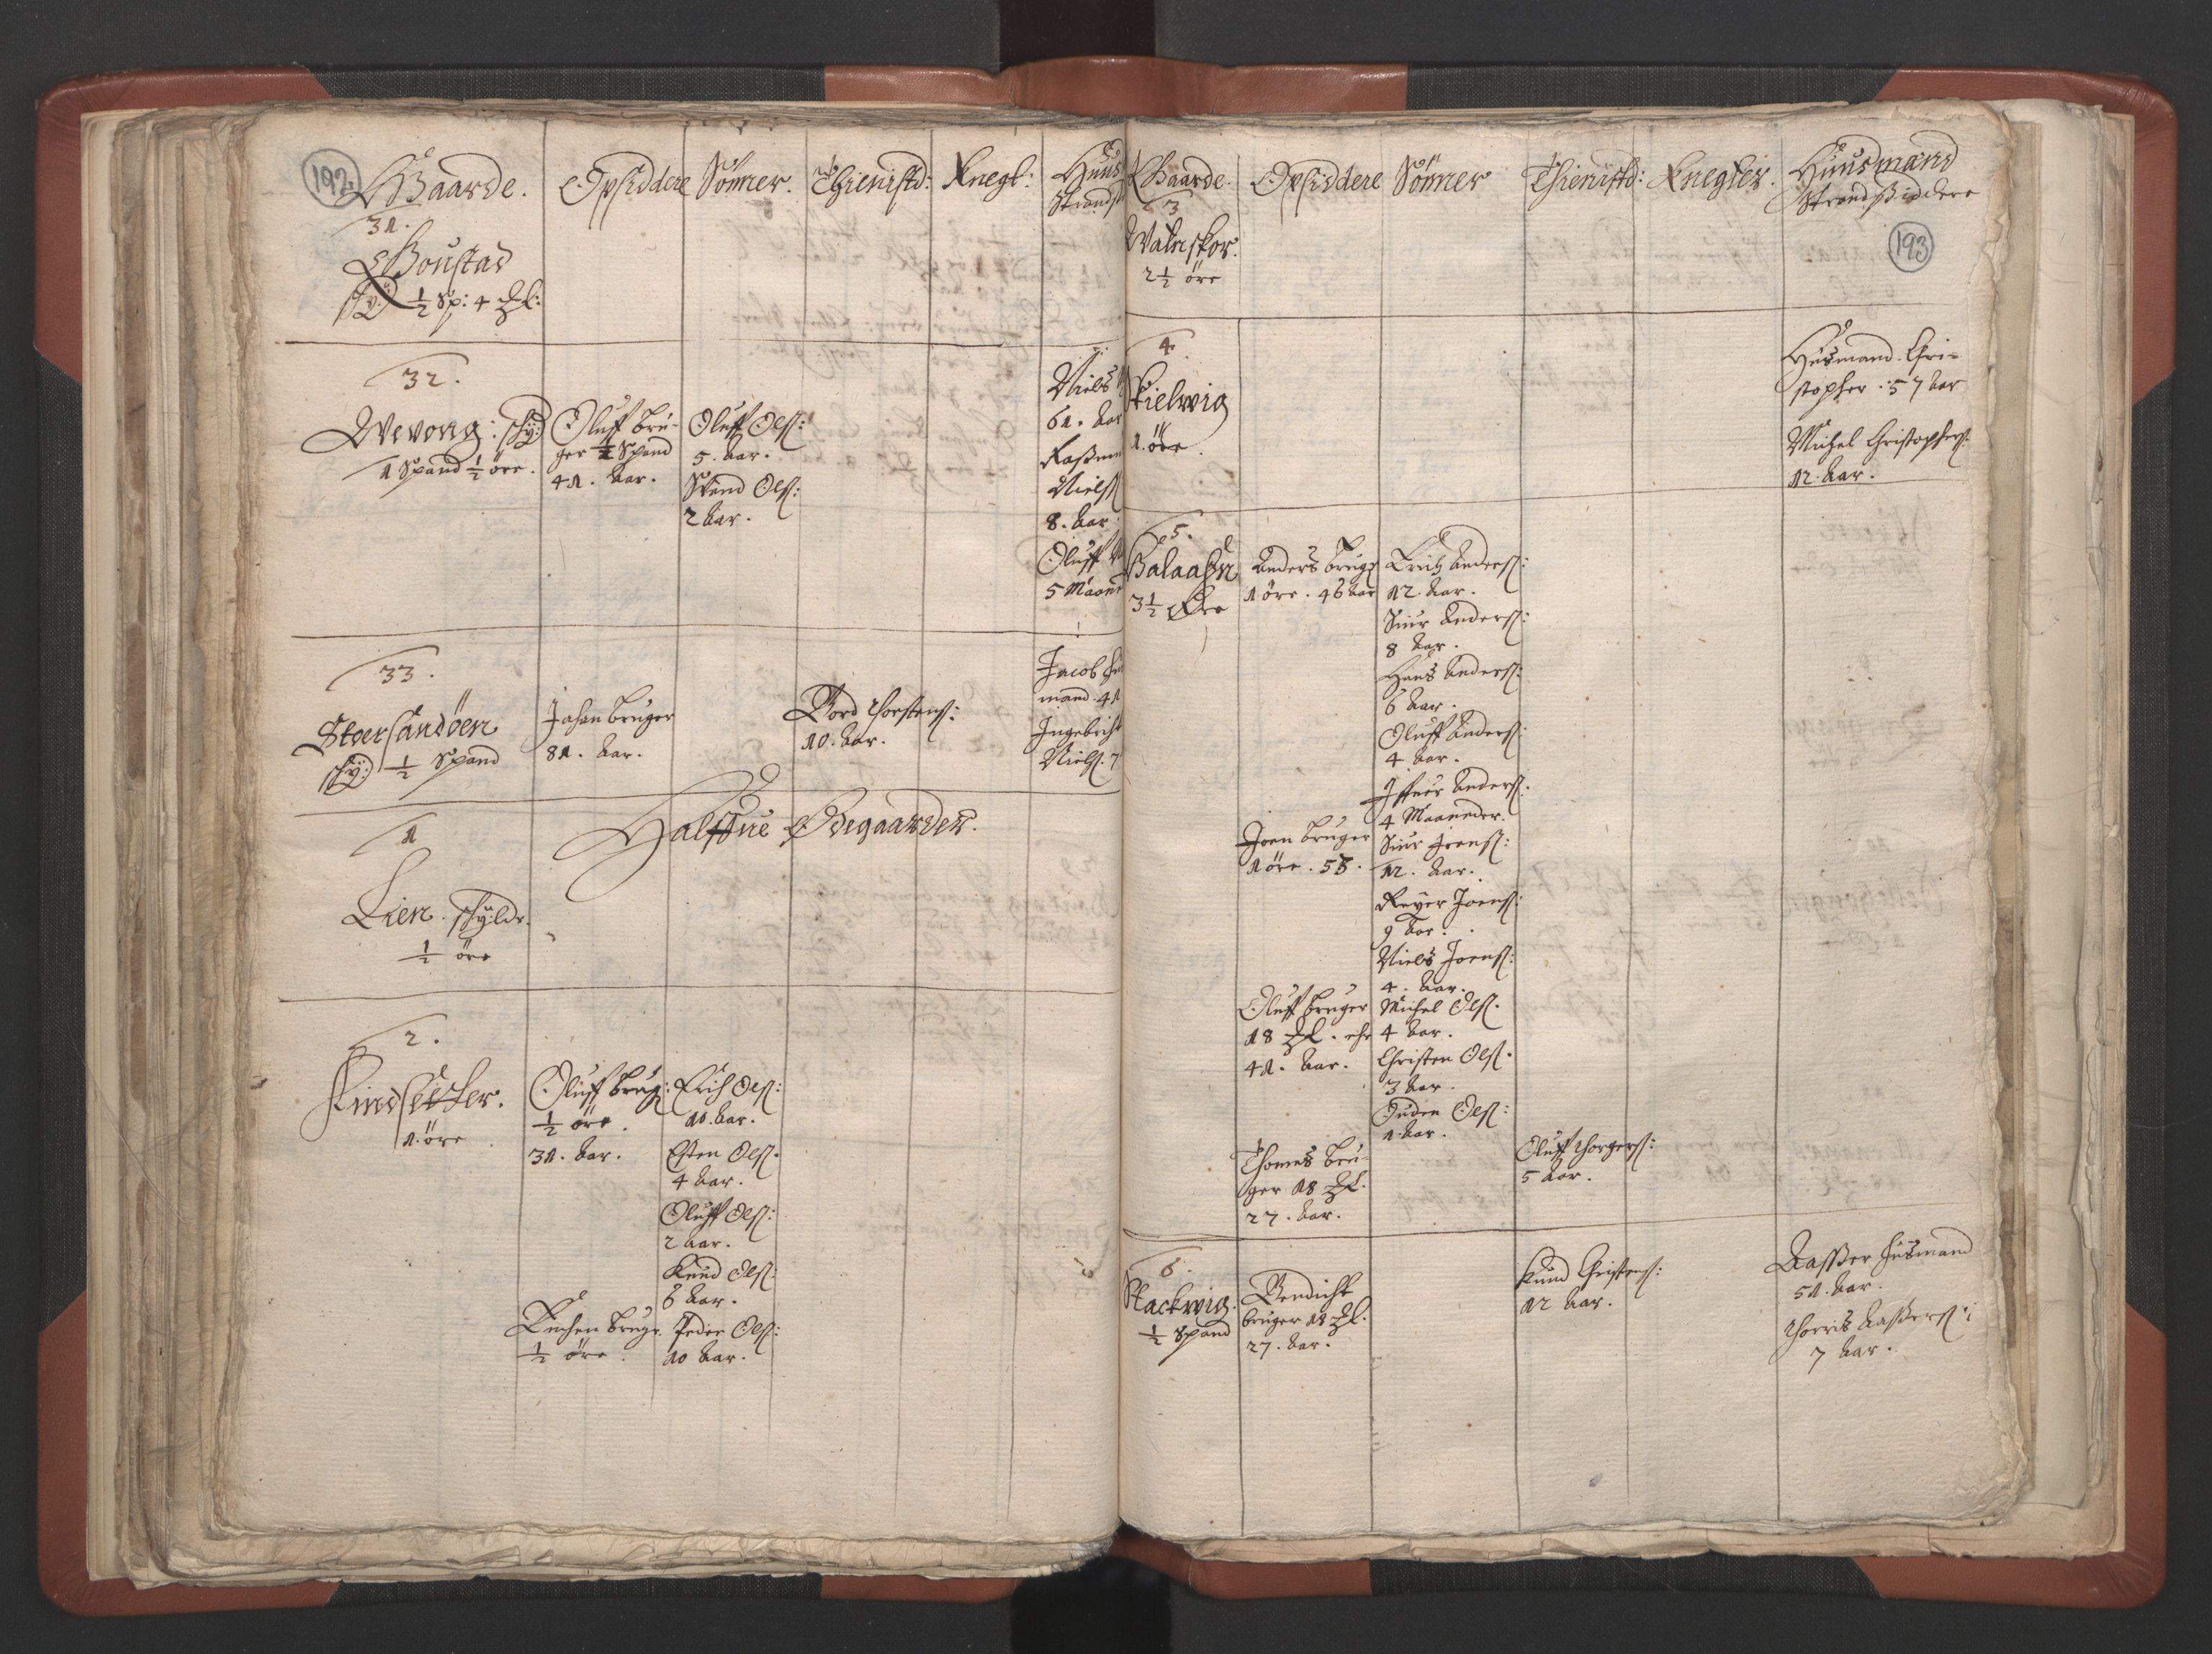 192
Gaarde. Opsiddere Sönner. Thienistd: Knegt: Huus
Strands
31.
Boustad
sky: ½ Sp: 4
32.
Wevong: sky:
1 Spand ½ öre.
Oluff bru-
ger ½ Spand
41. Aar.
Oluff Ols:
5. Aar.
Svend Ols:
2 Aar.
Niels
61. Aar
Rasmu
Niels
8. Aar
Oluff
5 Maane
33.
Stoersandöen
sky: ½ Spand
Johan bruger
81. Aar.
Bord Thorstens:
10. Aar.
Jacob hu
mand 41
Ingebricht
Niels. 7
Halffue Ödegaarder.
1
Lien. skyldr.
½ öre
2.
Kindsetter.
1. öre
Oluff brug:
½ öre.
31. Aar.
Erich Ols:
10. Aar.
Esten Ols.
4 Aar.
Oluff Ols:
2 Aar.
Knud Ols.
6 Aar.
Lechen brugr.
½ öre.
Peder Ols:
10 Aar.
Gaarde. Opsiddere Sönner Thienistd: Knegter. Huusmænd
Strandsiddere
193
3
Walnskor.
2½ öre
4.
Skielwig
1. öre.
Husmand. Chri-
stopher. 57 Aar
Michel Christophers.
12. Aar.
5.
Balaasn
3½ Öre
Anders brugr
1 öre. 46 Aar
Erich Anders:
12. Aar.
Siur Anders:
8 Aar.
Hans Anders:
6 Aar.
Oluff Anders:
4 Aar.
Iffuer Anders:
4 Maaneder.
Joen bruger
1 öre. 58.
Siur Joens:
12. Aar.
Reyer Joens:
9 Aar.
Niels Joens:
4. Aar.
Oluff bruger
18
41. Aar.
Michel Ols.
4 Aar.
Christen Ols.
3 Aar.
Ouden Ols:
1 Aar.
Thomes bru-
ger 18
27. Aar.
Oluff Thorgers:
5 Aar.
6.
Stackwig.
½ Spand
Bendicht
bruger 18
27. Aar.
Knud Christens:
12 Aar.
Aasser husmand
51. Aar.
Thorris Aassers:
7 Aar.